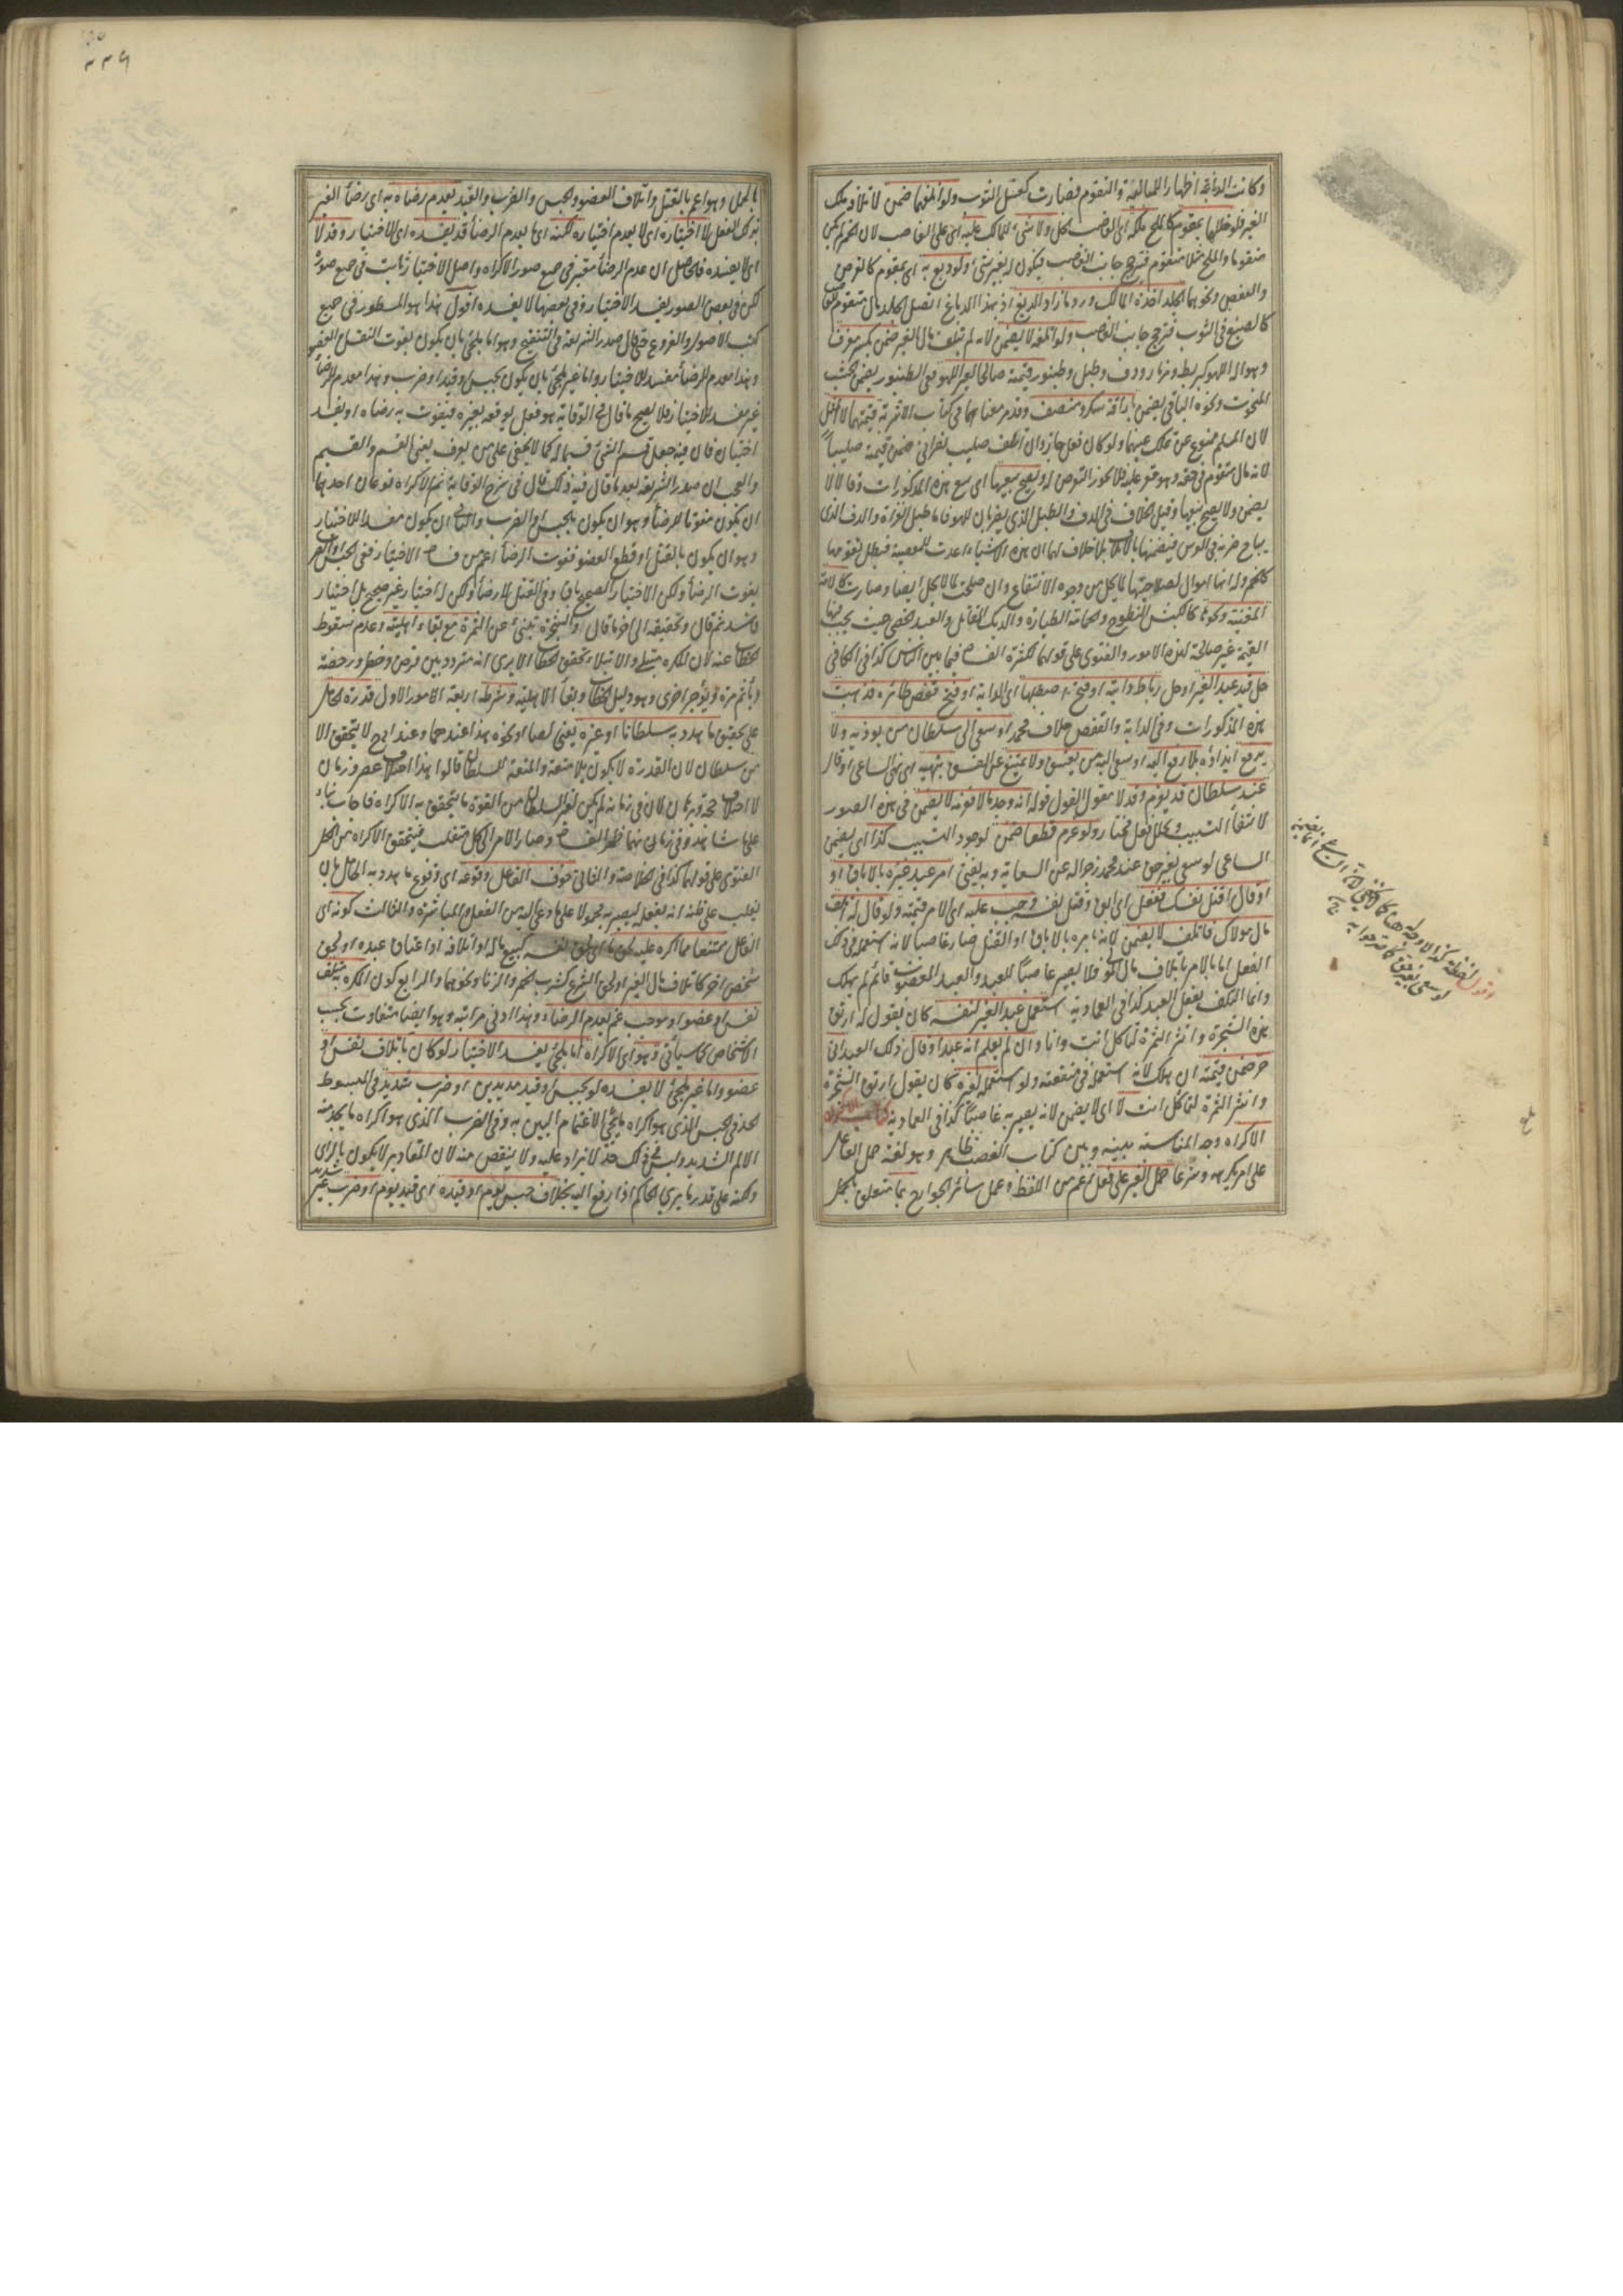 وكانت الدباغة اظهارا للمالية والتقوم فصارت كغسل الثوب ولو اتلفها ضمن لاتلافه ملك
الغير فلو خللها بمتقوم كالملح ملكه اى الغاصب الخل ولا شئ للمالك عليه اى على الغاصب لان الخمر لم يكن
متقوما والملح مثلا متقوم فترجح جانب الغاصب فيكون له بغير شئ ولو دبغ به اى بمتقوم كالقرص
والعفص ونحوهما الجلد اخذه المالك ورد ما زاد الدبغ اذ بهذا الدباغ اتصل بالجلد مال متقوم
كالصبغ فى الثوب فترجح جانب الغاصب ولو اتلفه لا يضمن لانه لم يتلف مال الغير ضمن بكسر معزف
وهو آلة اللهو كبربط ومزمار ودف وطبل وطنبور قيمته صالحا لغير اللهو ففى الطنبور يضمن الخشب
المنحوت ونحوه الباقى يضمن باراقة سكر ومنصف وقد مر معناهما فى كتاب الاشربة قيمتهما لا المثل
لان المسلم ممنوع عن تملك عينهما ولو كان فعل جاز وان اتلف صليب نصرانى ضمن قيمته صليبا
لانه مال متقوم فى حقه وهو مقر عليه فلا يجوز التعرض له ويصح بيعها اى بيع هذه المذكورات وقالا لا
يضمن ولا يصح بيعها وقيل الخلاف فى الدف والطبل الذى يضربان للهو فاما طبل الغزاة والدف الذى
يباح ضربه فى العرس فيضمنها بالاتلاف بلا خلاف لهما ان هذه الاشياء اعدت للمعصية فبطل تقومها
كالخمر وله انها اموال لصلاحيتها لما يحل من وجوه الانتفاع وان صلحت لما لا يحل ايضا وصارت كالامة
المغنية ونحوها كالكبش النطوح والحمامة الطيارة والديك المقاتل والعبد الخصى حيث يجب فيها
القيمة غير صالحة لهذه الامور والفتوى على قولهما لكثرة الفساد فيما بين الناس كذا فى الكافى
حل قيد عبد الغير او حل رباط دابته او فتح اصطبلها اى الدابة او فتح قفص طائره فذهبت
هذه المذكورات وفى الدابة والقفص خلاف محمد او سعى الى سلطان من يؤذيه ولا
يدفع ايذاؤه بلا رفع اليه او سعى اليه من يفسق ولا يمتنع عن الفسق بنهيه اى نهى الساعى او قال
عند سلطان قد يغرم وقد لا مقول القول قوله انه وجد مالا فغرمه لا يضمن فى هذه الصور
لانتفاء التسبيب وتخلل فعل مختار ولو غرم قطعا ضمن لوجود التسبيب كذا اى يضمن
الساعى لو سعى بغير حق عند محمد زجرا له عن السعاية وبه يفتى امر عبد غيره بالاباق او
او قال اقتل نفسك ففعل اى ابق وقتل نفسه وجب عليه اى الآمر قيمته ولو قال له اتلف
مال مولاك فاتلف لا يضمن لانه بامره بالاباق او القتل صار غاصبا لانه استعمله فى ذلك
الفعل اما بالامر باتلاف مال المولى فلا يصير غاصبا للعبد والعبد المغصوب قائم لم يهلك
وانما التلف بفعل العبد كذا فى العمادية استعمل عبد الغير لنفسه كان يقول له ارتق
هذه الشجرة وانثر الثمرة لتأكل انت وانا وان لم يعلم انه عبد او قال ذلك العبد انى
حر ضمن قيمته ان هلك لانه استعمله فى منفعته ولو استعمله لغيره كان يقول ارتق الشجرة
وانثر الثمرة لتأكل انت لا اى لا يضمن لانه يصير به غاصبا كذا فى العمادية كتاب الاكراه
الاكراه وجه المناسبة بينه وبين كتاب الغصب ظاهر وهو لغة حمل الفاعل
على امر يكرهه وشرعا حمل الغير على فعل اعم من اللفظ وعمل سائر الجوارح بما متعلق بالحمل
وقوله
لو سعى بغير حق
بالحمل وهو اعم بالقتل واتلاف العضو والحبس والضرب والقيد يعدم رضاه به اى رضا الغير
بذلك الفعل لا اختياره اى لا يعدم اختياره لكنه اى ما يعدم الرضا قد يفسده اى الاختيار وقد لا
اى لا يفسده فالحاصل ان عدم الرضا معتبر فى جميع صور الاكراه واصل الاختيار ثابت فى جميع صوره
لكن فى بعض الصور يفسد الاختيار وفى بعضها لا يفسده اقول هذا هو المسطور فى جميع
كتب الاصول والفروع حتى قال صدر الشريعة فى التنقيح وهو اما ملجئ بان يكون بفوت النفس او العضو
وهذا معدم للرضا مفسد للاختيار واما غير ملجئ بان يكون بحبس او قيد او ضرب وهذا معدم للرضا
غير مفسد للاختيار فلا يصح ما قال فى الوقاية هو فعل يوقعه بغيره فيفوت به رضاه او يفسد
اختياره فان فيه جعل قسم الشئ قسيما له كما لا يخفى على من يعرف يعنى القسم والقسيم
والعجب ان صدر الشريعة بعد ما قال فيه ذلك قال فى شرح الوقاية ثم الاكراه نوعان احدهما
ان يكون مفوتا للرضا وهو ان يكون بالحبس او الضرب والثانى ان يكون مفسدا للاختيار
وهو ان يكون بالقتل او قطع العضو ففوت الرضا اعم من فساد الاختيار ففى الحبس او الضرب
يفوت الرضا ولكن الاختيار الصحيح باق وفى القتل لا رضا ولكن له اختيار غير صحيح بل اختيار
فاسد ثم قال وتحقيقه الى آخر ما قال
الخطاب عنه لان المكره مبتلى والابتلاء يحقق الخطاب الا يرى انه متردد بين فرض وحظر ورخصة
ويأثم مرة ويؤجر اخرى وهو دليل الخطاب وبقاء الاهلية وشرطه اربعة امور الاول قدرة الحامل
على تحقيق ما هدد به سلطانا او غيره يعنى لصا او نحوه هذا عندهما وعند ابى ح لا يتحقق الا
من سلطان لان القدرة لا يكون بلا منعة والمنعة للسلطان قالوا هذا اختلاف عصر وزمان
لا اختلاف حجة وبرهان لان فى زمانه لم يكن لغير السلطان من القوة ما يتحقق به الاكراه فاجاب بناء
على ما شاهد وفى زمانهما ظهر الفساد وصار الامر الى كل متغلب فيتحقق الاكراه من الكل
الفتوى على قولهما كذا فى الخلاصة والثانى خوف الفاعل وقوعه اى وقوع ما هدد به الحامل بان
يغلب على ظنه انه يفعله ليصير به محمولا على ما دعى اليه من الفعل والمباشرة والثالث كونه اى
الفاعل ممتنعا مما اكره عليه لحق ما اى لحق نفسه كبيع ماله او اتلافه او اعتاق عبده او لحق
شخص آخر كاتلاف مال الغير او لحق الشرع كشرب الخمر والزنا ونحوهما والرابع كون المكره به متلف
نفس او عضو او موجب غم يعدم الرضاء وهذا ادنى مراتبه وهو ايضا متفاوت بحسب
الاشخاص كما سيأتى وهو اى الاكراه اما ملجئ يفسد الاختيار لو كان باتلاف نفس او
عضو واما غير ملجئ لا يفسده لو بحبس او قيد مديدين او ضرب شديد فى المبسوط
الحد فى الحبس الذى هو اكراه ما يجئ الاغتمام البين به وفى الضرب الذى هو اكراه ما يجد منه
الالم الشديد وليس فى ذلك حد لا يزاد عليه ولا ينقص منه لان المقادير لا يكون بالراى
ولكنه على قدر ما يرى الحاكم اذا رفع اليه بخلاف حبس يوم او قيده اى قيد يوم او ضرب غير شديد